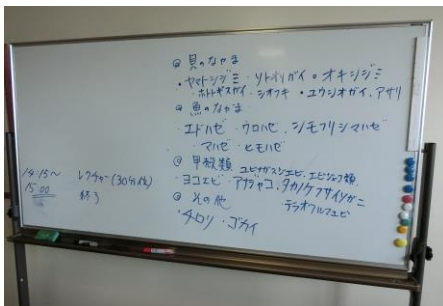 ◎ 貝のなかま
・ヤマトシジミ ・ソトオリガイ ・オキシジミ
・ホトトギスガイ ・シオフキ ・ユウシオガイ、アサリ
◎ 魚のなかま
エドハゼ ・ウロハゼ 、シモフリシマハゼ
マハゼ ・ヒモハゼ
◎ 甲殻類 ユビナガスジエビ、エビジャコ類
・ヨコエビ ・アナジャコ、タカノケフサイソガニ
◎ その他 ・テッポウエビ
・チロリ ・ゴカイ
14:15〜 レクチャー(30分位)
15:00 終了